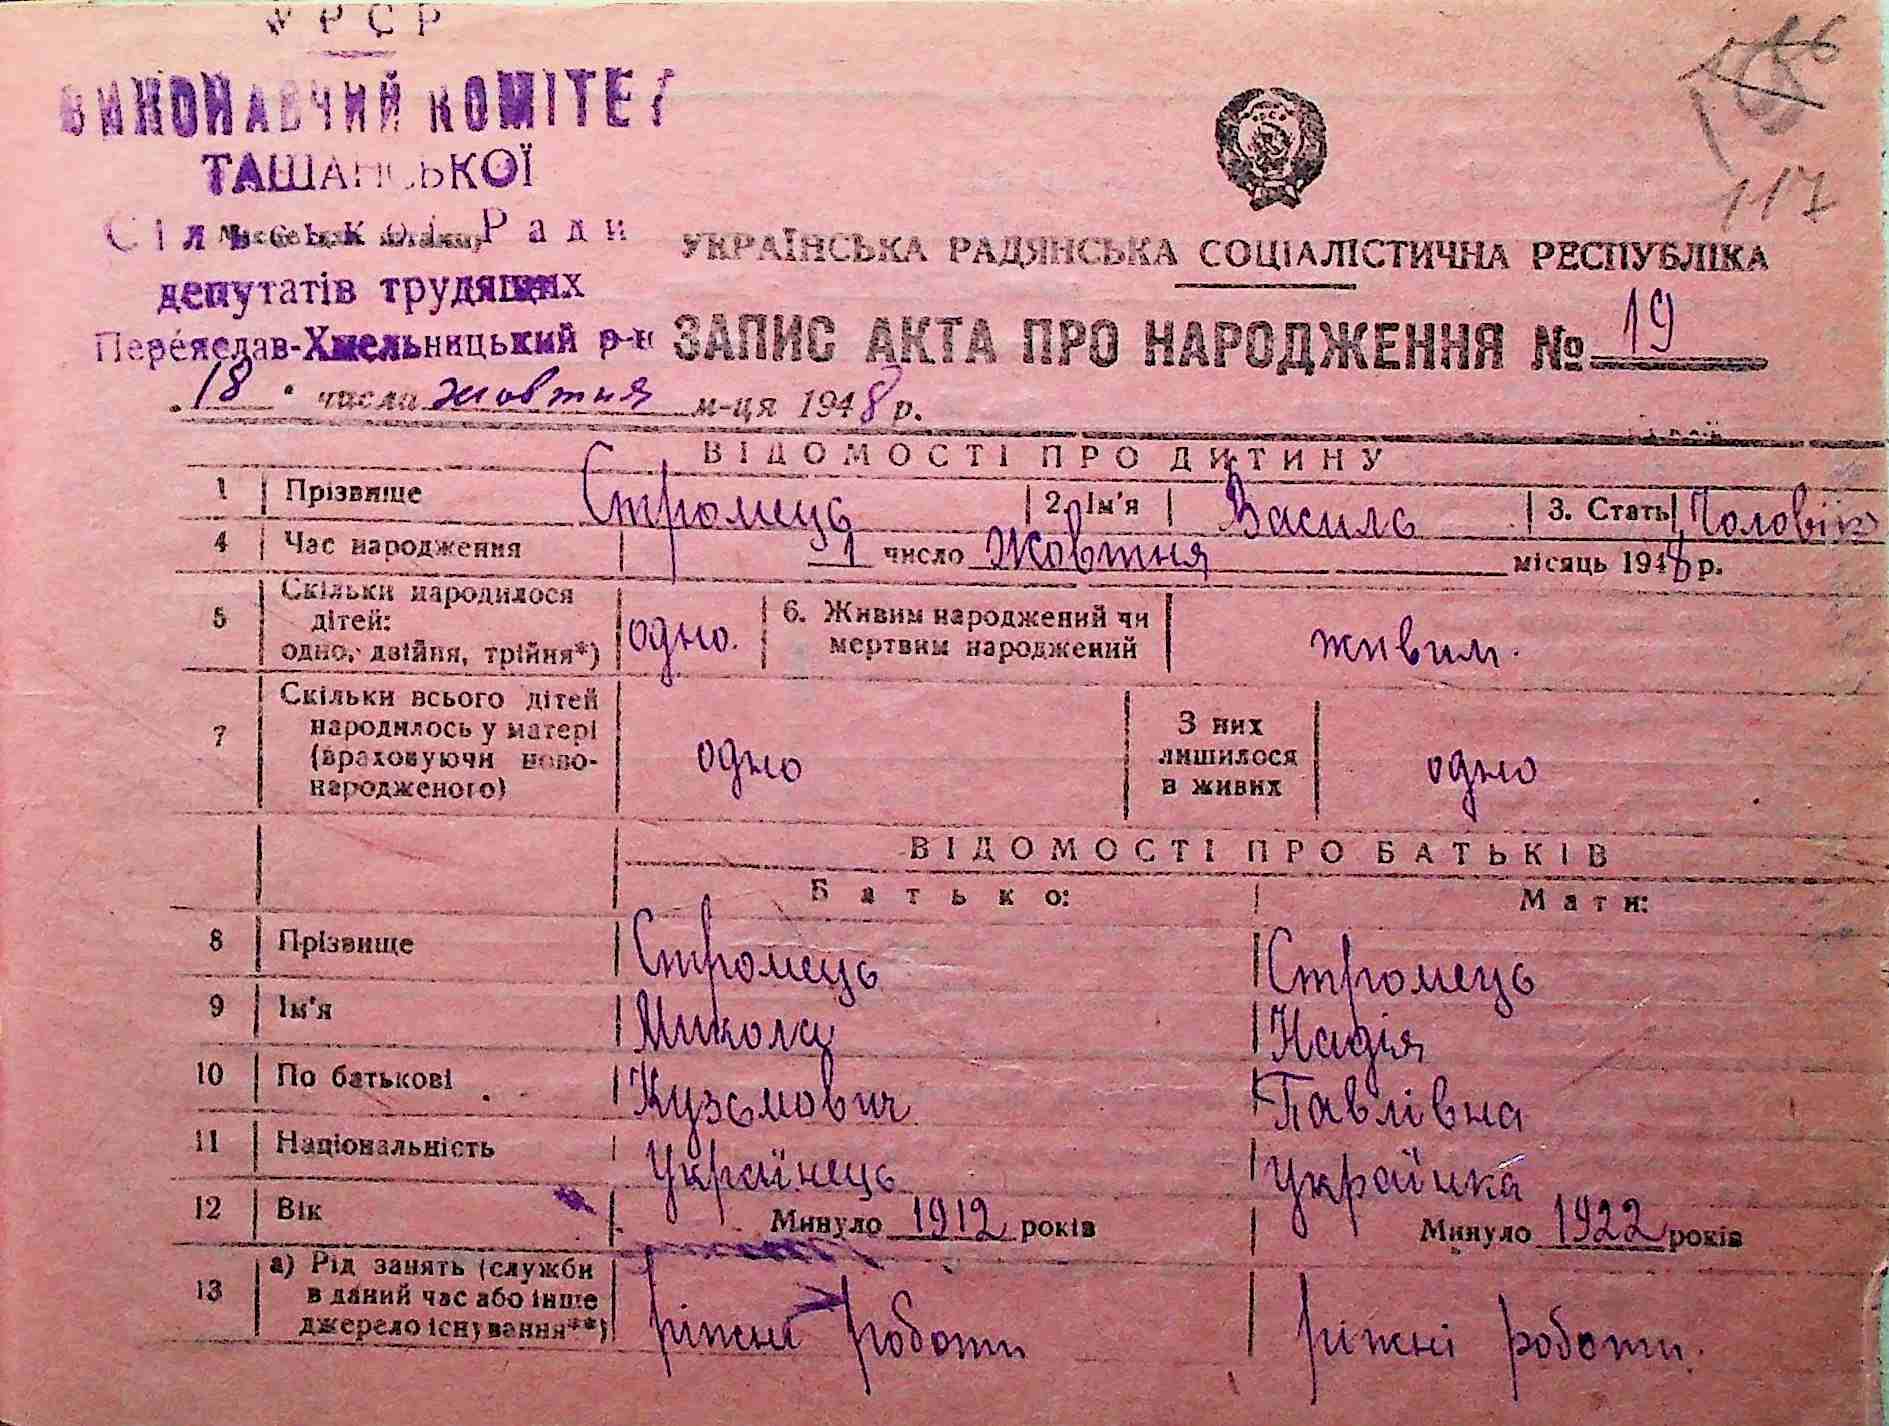 УРСР
ВИКОНАВЧИЙ КОМІТЕТ
ТАШАНСЬКОЇ
Сільської Ради
депутатів трудящих
Переяслав-Хмельницький р-н
117
УКРАЇНСЬКА РАДЯНСЬКА СОЦІАЛІСТИЧНА РЕСПУБЛІКА
ЗАПИС АКТА ПРО НАРОДЖЕННЯ № 19
„18“ числа жовтня м-ця 1948 р.
ВІДОМОСТІ ПРО ДИТИНУ
1 Прізвище Стромець 2. Ім'я Василь 3. Стать Чоловік
4 Час народження 1 число Жовтня місяць 1948 р.
5 Скільки народилося дітей: одно, двійня, трійня*) одно. 6. Живим народжений чи мертвим народжений живим.
7 Скільки всього дітей народилось у матері (враховуючи новонародженого) одно З них лишилося в живих одно
ВІДОМОСТІ ПРО БАТЬКІВ
Батько: Мати:
8 Прізвище Стромець Стромець
9 Ім'я Микола Надія
10 По батькові Кузьмович Павлівна
11 Національність Українець Українка
12 Вік Минуло 1912 років Минуло 1922 років
13 а) Рід занять (служби в даний час або інше джерело існування**) ріжні роботи ріжні роботи.